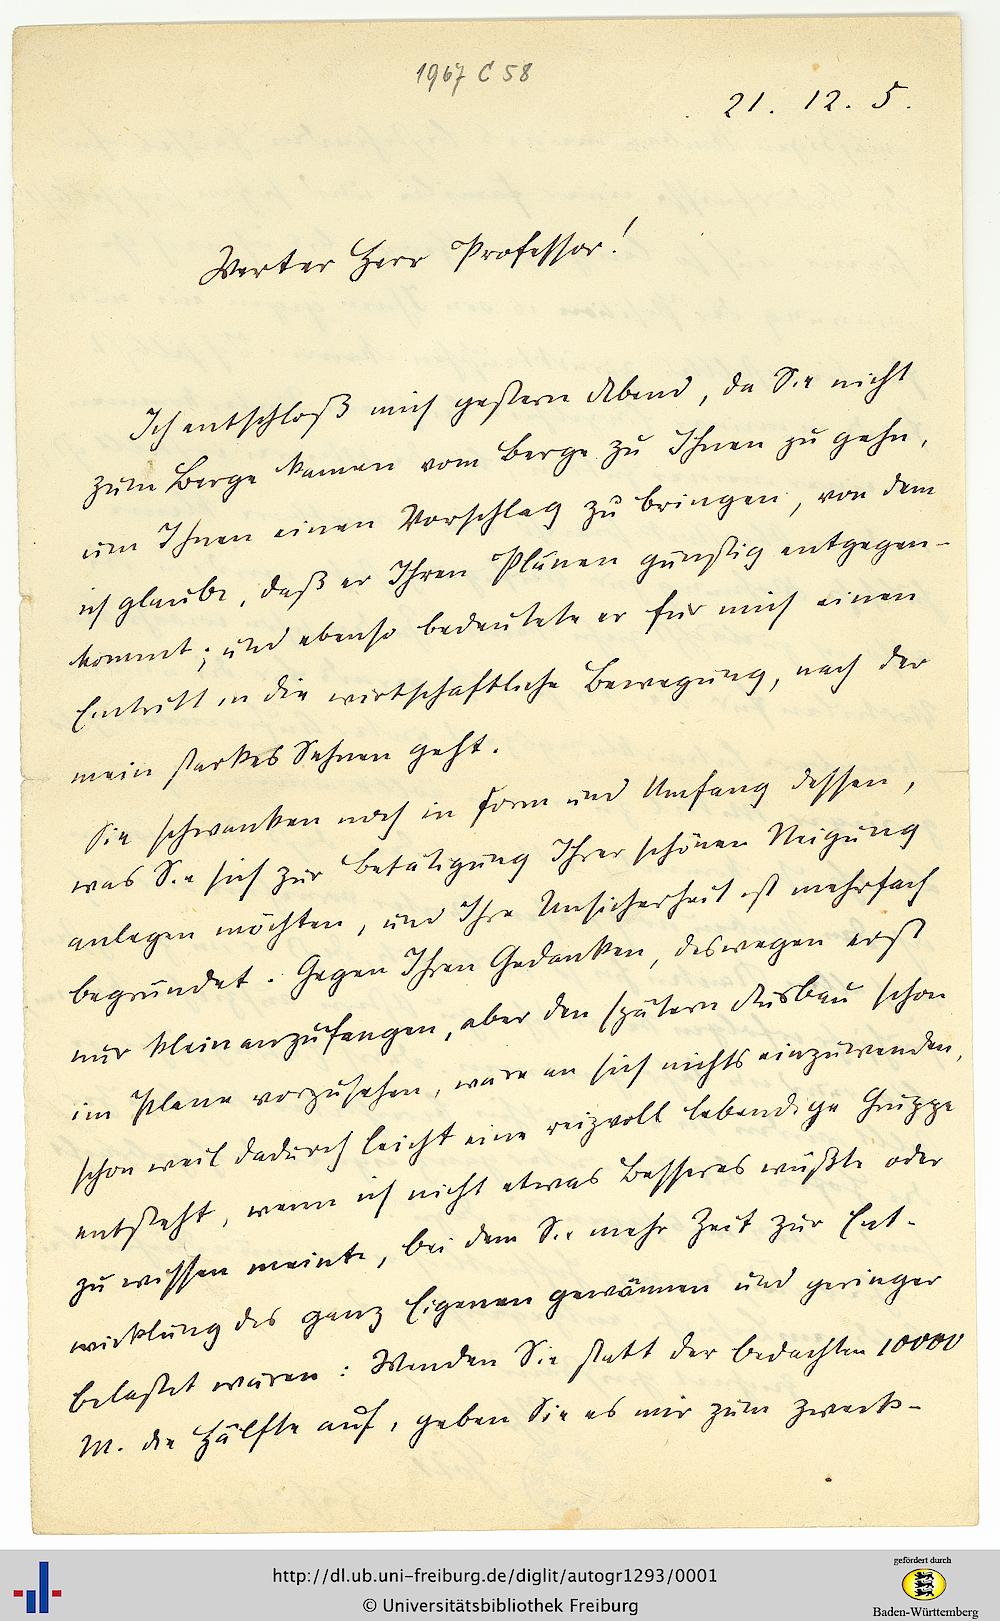 1967 C 58
21. 12. 5.
Werter Herr Professor!
Ich entschloß mich gestern Abend, da Sie nicht
zum Berge kamen vom Berge zu Ihnen zu gehn,
um Ihnen einen Vorschlag zu bringen, von dem
ich glaube, daß er Ihren Plänen günstig entgegen-
kommt; und ebenso bedeutete er für mich einen
Eintritt in die wirtschaftliche Bewegung, nach der
mein starkes Sehnen geht.
Sie schwanken noch in Form und Umfang dessen,
was Sie sich zur Betätigung Ihrer schönen Neigung
anlegen möchten, und Ihre Unsicherheit ist mehrfach
begründet. Gegen Ihren Gedanken, deswegen erst
nur klein anzufangen, aber den spätern Ausbau schon
im Plane vorzusehen, wäre an sich nichts einzuwenden,
schon weil dadurch leicht eine reizvoll lebendige Gruppe
entsteht, wenn ich nicht etwas Besseres wüßte oder
zu wissen meinte, bei dem Sie mehr Zeit zur Ent-
wicklung des ganz Eigenen gewännen und geringer
belastet wären: Wenden Sie statt der bedachten 10000
M. die Hälfte auf, geben Sie es mir zum zweck-
http://dl.ub.uni-freiburg.de/diglit/autogr1293/0001
© Universitätsbibliothek Freiburg
gefördert durch
Baden-Württemberg